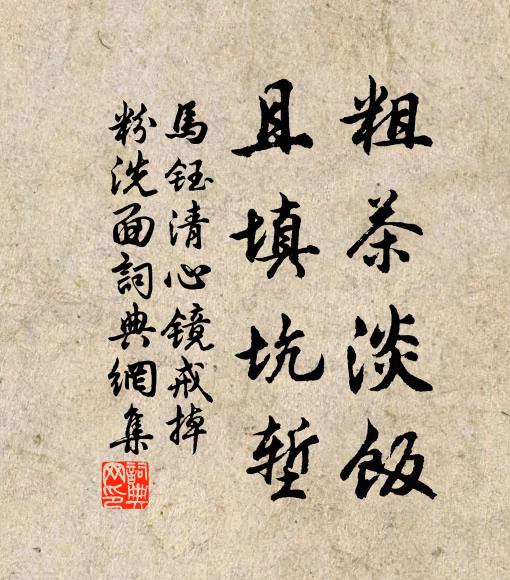 粗茶淡飯
且填坑塹
馬鈺清心鏡戒掉
粉洗面詞典網集
詞典网印